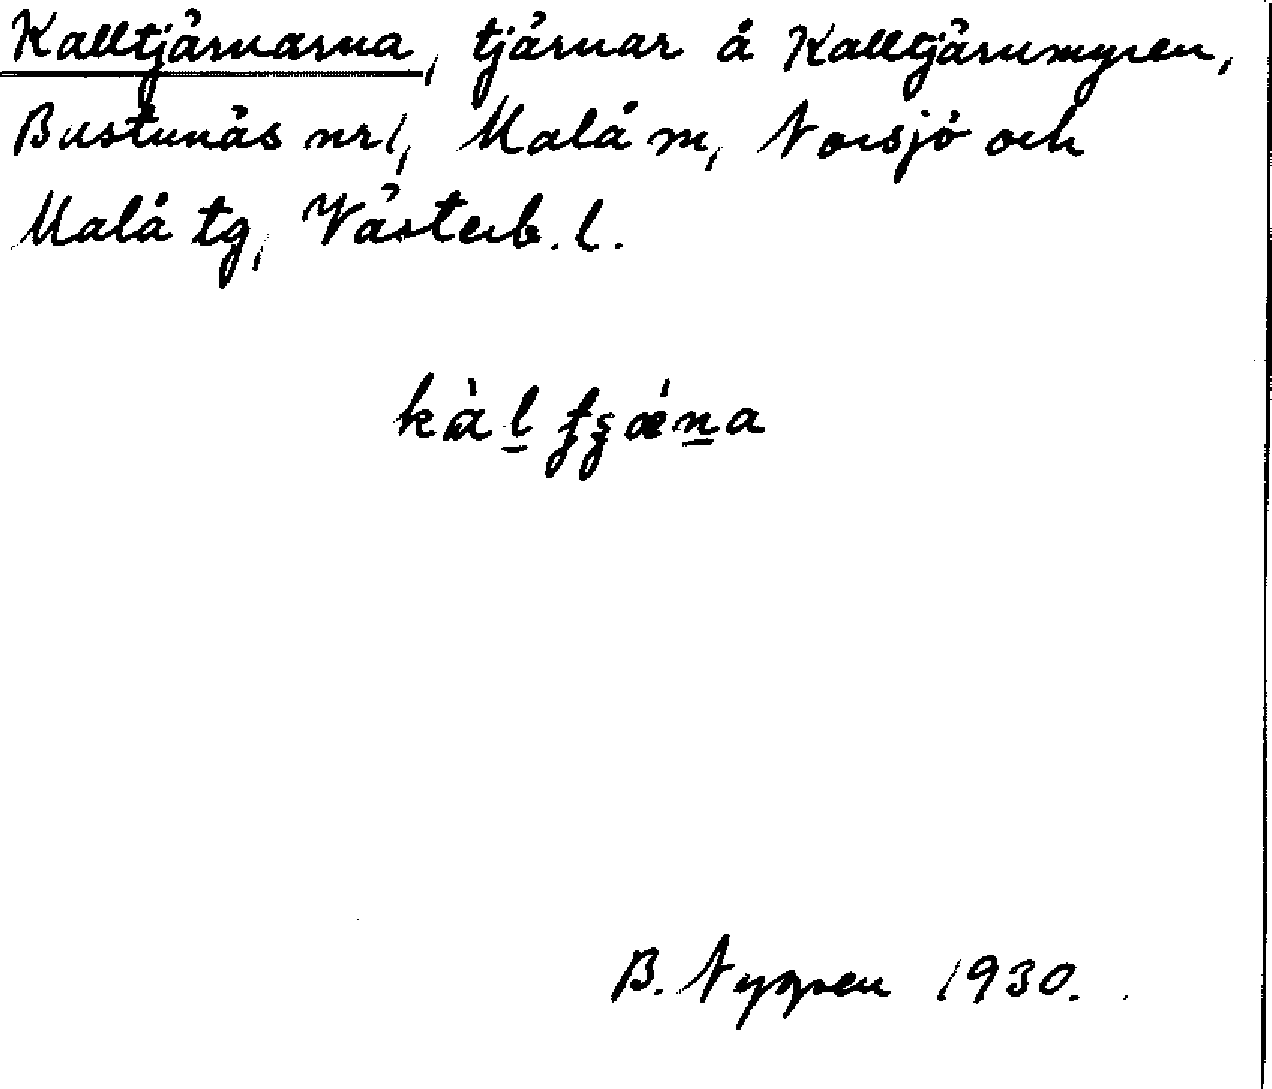 Kalltjärnarna, tjärnar å Kalltjärnmyren,
Bustunäs nr 1, Malå m, Norsjö och
Malå tg, Västerb. l.
B. Nygren 1930.